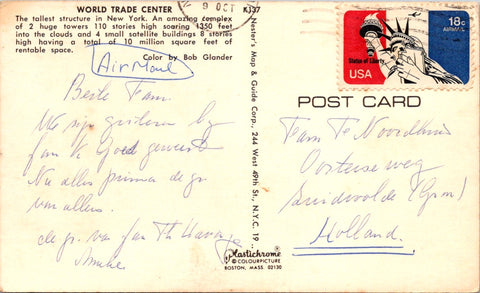 WORLD TRADE CENTER
KJ37
The tallest structure in New York. An amazing complex
of 2 huge towers 110 stories high soaring 1350 feet
into the clouds and 4 small satellite buildings 8 stories
high having a total of 10 million square feet of
rentable space.
Color by Bob Glander
Air Mail
Beste Fam.
We zijn gisteren bij
fam
geweest
Nu alles prima de gr
van allen.
de gr. van fam
Nester's Map & Guide Corp., 244 West 49th St., N.Y.C. 19..
Plastichrome ®
© COLOURPICTURE
BOSTON, MASS. 02130
9 OCT
Statue of Liberty
USA
18c
AIRMAIL
POST CARD
Fam Te
Oosterseweg
Zuidwolde (Grn)
Holland.